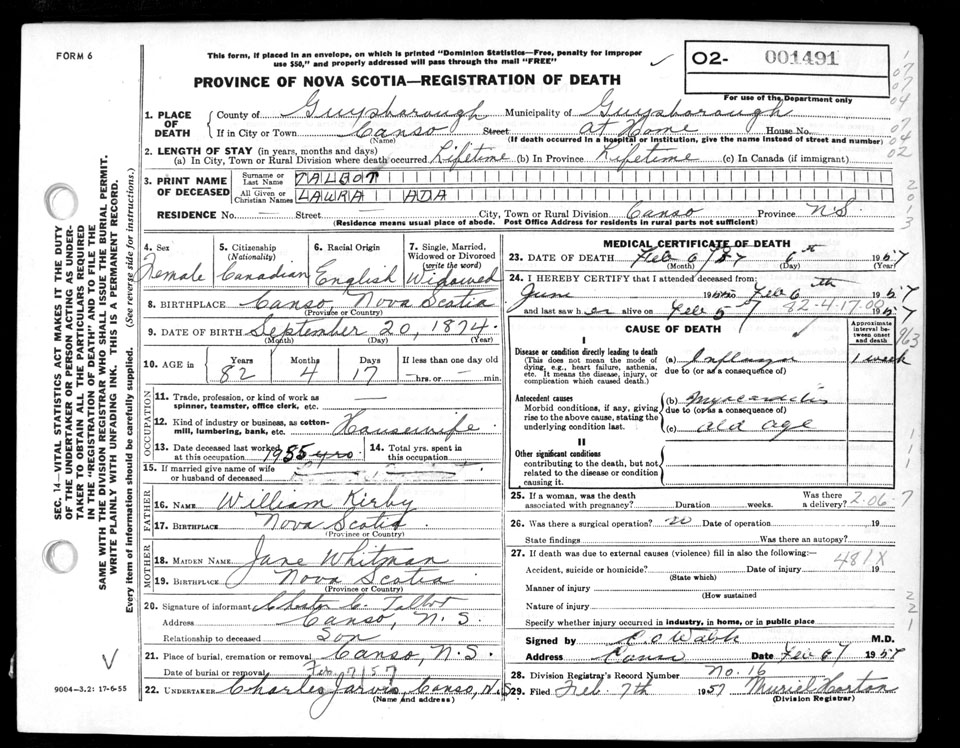 FORM 6
This form, if placed in an envelope, on which is printed "Dominion Statistics—Free, penalty for improper
use $50," and properly addressed will pass through the mail "FREE"
02- 001491
For use of the Department only
PROVINCE OF NOVA SCOTIA—REGISTRATION OF DEATH
1. PLACE OF DEATH
County of Guysborough Municipality of Guysborough
If in City or Town Canso Street at Home House No.
(Name) (If death occurred in a hospital or institution, give the name instead of street and number)
2. LENGTH OF STAY (in years, months and days)
(a) In City, Town or Rural Division where death occurred Lifetime (b) In Province Lifetime (c) In Canada (if immigrant)
3. PRINT NAME OF DECEASED
Surname or Last Name TALBOT
All Given or Christian Names LAWRA ADA
RESIDENCE No. — Street — City, Town or Rural Division Canso Province N.S.
(Residence means usual place of abode. Post Office Address for residents in rural parts not sufficient)
4. Sex Female
5. Citizenship (Nationality) Canadian
6. Racial Origin English
7. Single, Married, Widowed or Divorced (write the word) Widowed
8. BIRTHPLACE Canso, Nova Scotia
(Province or Country)
9. DATE OF BIRTH September 20, 1874.
(Month) (Day) (Year)
10. AGE in Years 82 Months 4 Days 17 If less than one day old — hrs. or — min.
OCCUPATION
11. Trade, profession, or kind of work as spinner, teamster, office clerk, etc. —
12. Kind of industry or business, as cotton-mill, lumbering, bank, etc. Housewife
13. Date deceased last worked at this occupation 1955 yrs.
14. Total yrs. spent in this occupation
15. If married give name of wife or husband of deceased
FATHER
16. NAME William Kirby
17. BIRTHPLACE Nova Scotia
(Province or Country)
MOTHER
18. MAIDEN NAME Jane Whitman
19. BIRTHPLACE Nova Scotia
(Province or Country)
20. Signature of informant Chester C. Talbot
Address Canso, N. S.
Relationship to deceased Son
21. Place of burial, cremation or removal Canso, N.S.
Date of burial or removal Feb 7/57
22. UNDERTAKER Charles Jarvis, Canso, N.S
(Name and address)
MEDICAL CERTIFICATE OF DEATH
23. DATE OF DEATH Feb 6/57 6th 1957
(Month) (Day) (Year)
24. I HEREBY CERTIFY that I attended deceased from:
June Feb 6th 1957
and last saw her alive on Feb 5 1957
82-4-17.00
CAUSE OF DEATH
Approximate interval between onset and death
I
Disease or condition directly leading to death (a) Influenza 1 week
(This does not mean the mode of dying, e.g., heart failure, asthenia, etc. It means the disease, injury, or complication which caused death.)
due to (or as a consequence of)
Antecedent causes (b) Myocarditis
Morbid conditions, if any, giving rise to the above cause, stating the underlying condition last.
due to (or as a consequence of)
(c) Old age
II
Other significant conditions
contributing to the death, but not related to the disease or condition causing it.
25. If a woman, was the death associated with pregnancy? Duration weeks. Was there a delivery? 2.06.7
26. Was there a surgical operation? no Date of operation 19
State findings Was there an autopsy?
27. If death was due to external causes (violence) fill in also the following:—
481X
Accident, suicide or homicide? Date of injury 19
(State which)
Manner of injury
(How sustained
Nature of injury
Specify whether injury occurred in industry, in home, or in public place
Signed by C. O Walsh M.D.
Address Canso Date Feb 6/ 1957
28. Division Registrar's Record Number No. 16
29. Filed Feb. 7th 1957 Muriel Horton
(Division Registrar)
SEC. 14—VITAL STATISTICS ACT MAKES IT THE DUTY
OF THE UNDERTAKER OR PERSON ACTING AS UNDER-
TAKER TO OBTAIN ALL THE PARTICULARS REQUIRED
IN THE "REGISTRATION OF DEATH" AND TO FILE THE
SAME WITH THE DIVISION REGISTRAR WHO SHALL ISSUE THE BURIAL PERMIT.
WRITE PLAINLY WITH UNFADING INK. THIS IS A PERMANENT RECORD.
Every item of information should be carefully supplied. (See reverse side for instructions.)
9004-3.2: 17-6-55